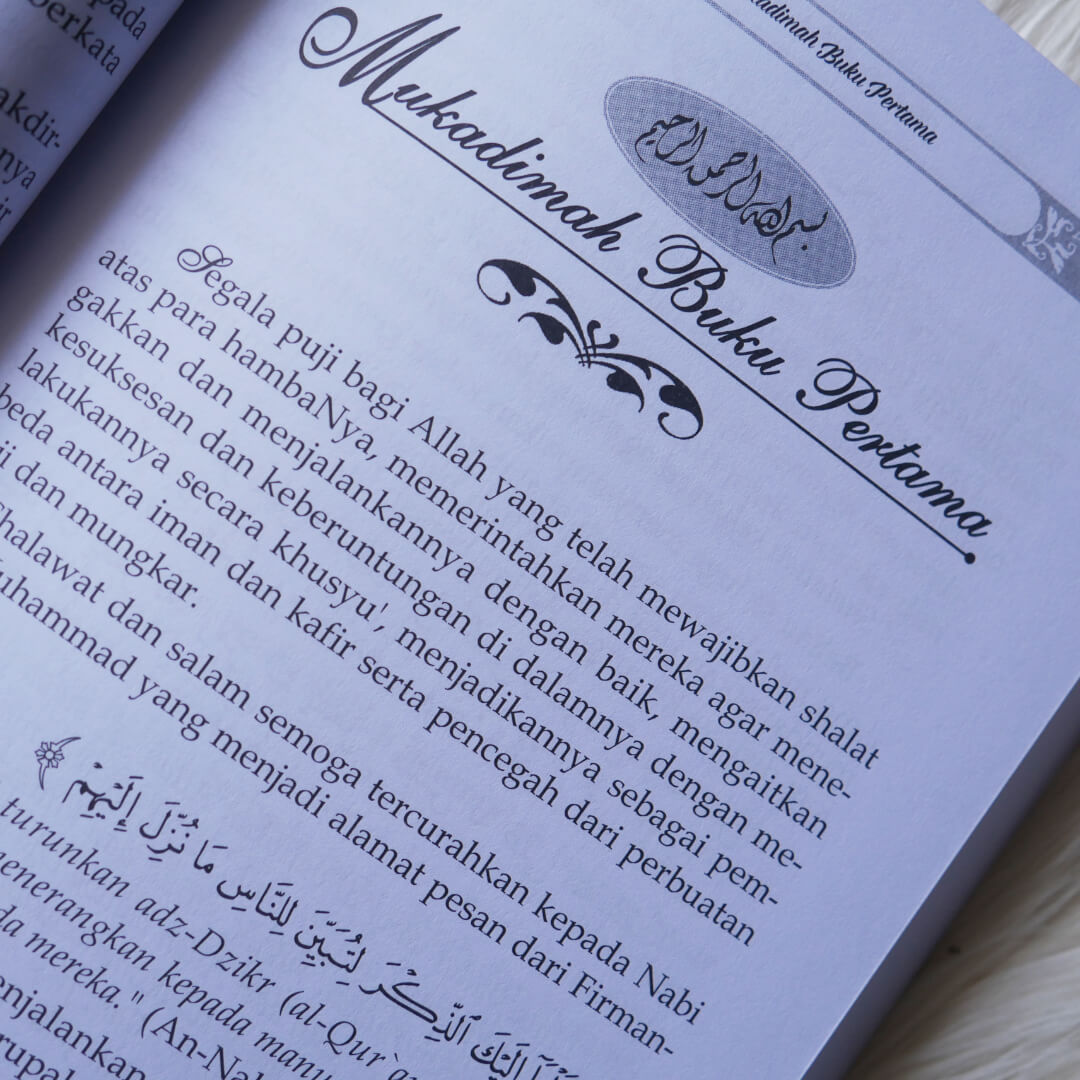 pada
berkata
akdir-
nya
Buku Pertama
بسم الله الرحمن الرحيم
Mukadimah Buku Pertama
Segala puji bagi Allah yang telah mewajibkan shalat
atas para hambaNya, memerintahkan mereka agar mene-
gakkan dan menjalankannya dengan baik, mengaitkan
kesuksesan dan keberuntungan di dalamnya dengan me-
lakukannya secara khusyu', menjadikannya sebagai pem-
beda antara iman dan kafir serta pencegah dari perbuatan
dan mungkar.
Shalawat dan salam semoga tercurahkan kepada Nabi
Muhammad yang menjadi alamat pesan dari Firman-
إِلَيْكَ ٱلذِّكْرَ لِتُبَيِّنَ لِلنَّاسِ مَا نُزِّلَ إِلَيْهِمْ
turunkan adz-Dzikr (al-Qur`
menerangkan kepada
mereka." (An-